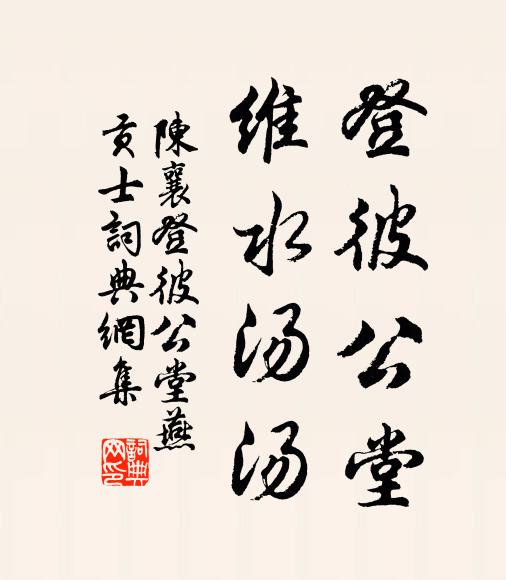 登彼公堂
維水汤汤
陳襄登彼公堂燕
貢士詞典網集
詞典
网印